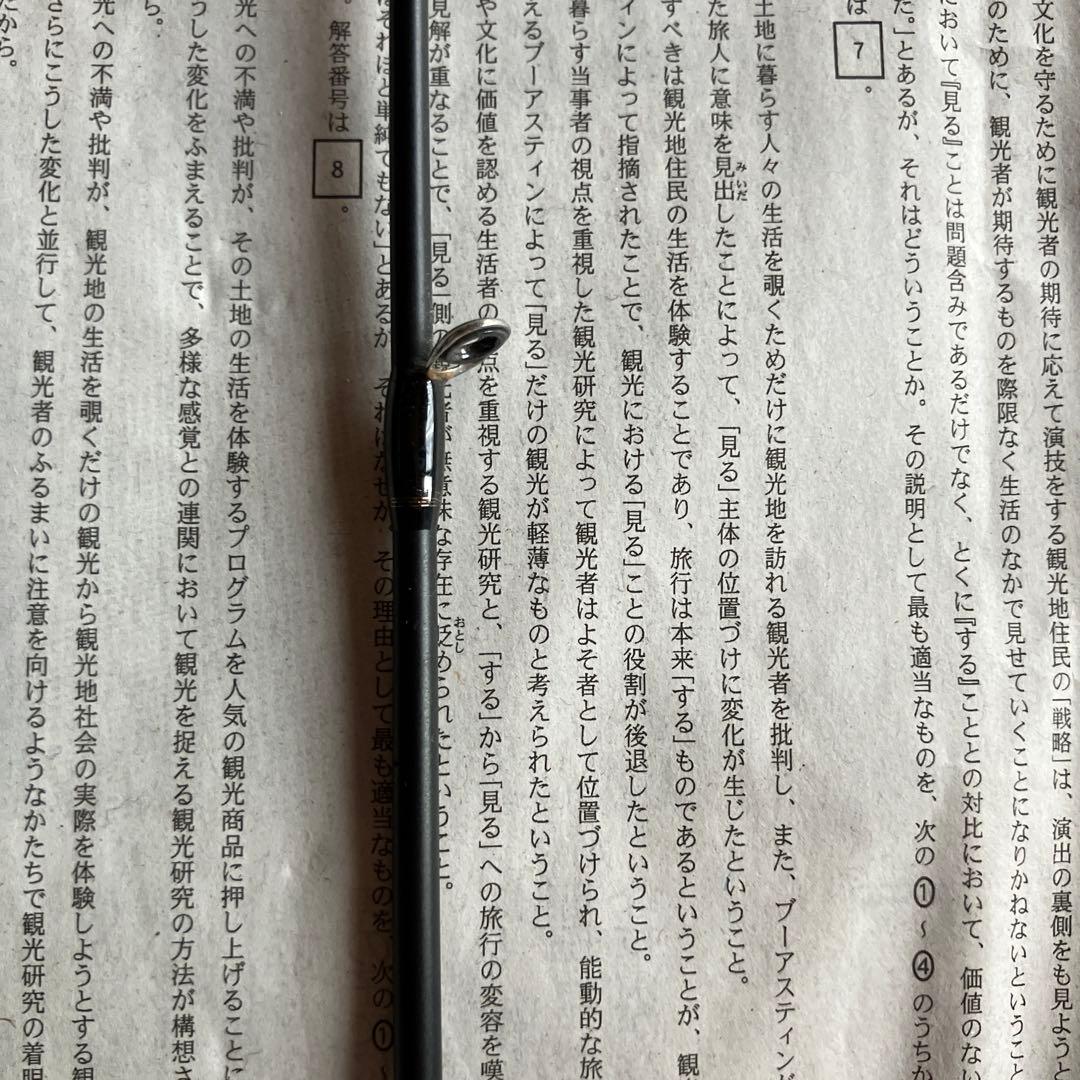 文化を守るために観光者の期待に応えて演技をする観光地住民の「戦略」は、演出の裏側をも見ようと
のために、観光者が期待するものを際限なく生活のなかで見せていくことになりかねないということ
において『見る』ことは問題含みであるだけでなく、とくに『する』こととの対比において、価値のない
た。」とあるが、それはどういうことか。その説明として最も適当なものを、次の①〜④のうちか
は 7 。
土地に暮らす人々の生活を覗くためだけに観光地を訪れる観光者を批判し、また、ブーアスティン
た旅人に意味を見出したことによって、「見る」主体の位置づけに変化が生じたということ。
みいだ
すべきは観光地住民の生活を体験することであり、旅行は本来「する」ものであるということが、観
インによって指摘されたことで、観光における「見る」ことの役割が後退したということ。
暮らす当事者の視点を重視した観光研究によって観光者はよそ者として位置づけられ、能動的な旅
えるブーアスティンによって「見る」だけの観光が軽薄なものと考えられたということ。
や文化に価値を認める生活者の点を重視する観光研究と、「する」から「見る」への旅行の変容を嘆
見解が重なることで、「見る」側の者が無意味な存在に貶められたということ。
おとし
はそれほど単純でもない」とあるが、それはなぜか。その理由として最も適当なものを、次の①〜
。解答番号は 8 。
光への不満や批判が、その土地の生活を体験するプログラムを人気の観光商品に押し上げることに
うした変化をふまえることで、多様な感覚との連関において観光を捉える観光研究の方法が構想さ
ら。
光への不満や批判が、観光地の生活を覗くだけの観光から観光地社会の実際を体験しようとする観
さらにこうした変化と並行して、観光者のふるまいに注意を向けるようなかたちで観光研究の着眼
たから。